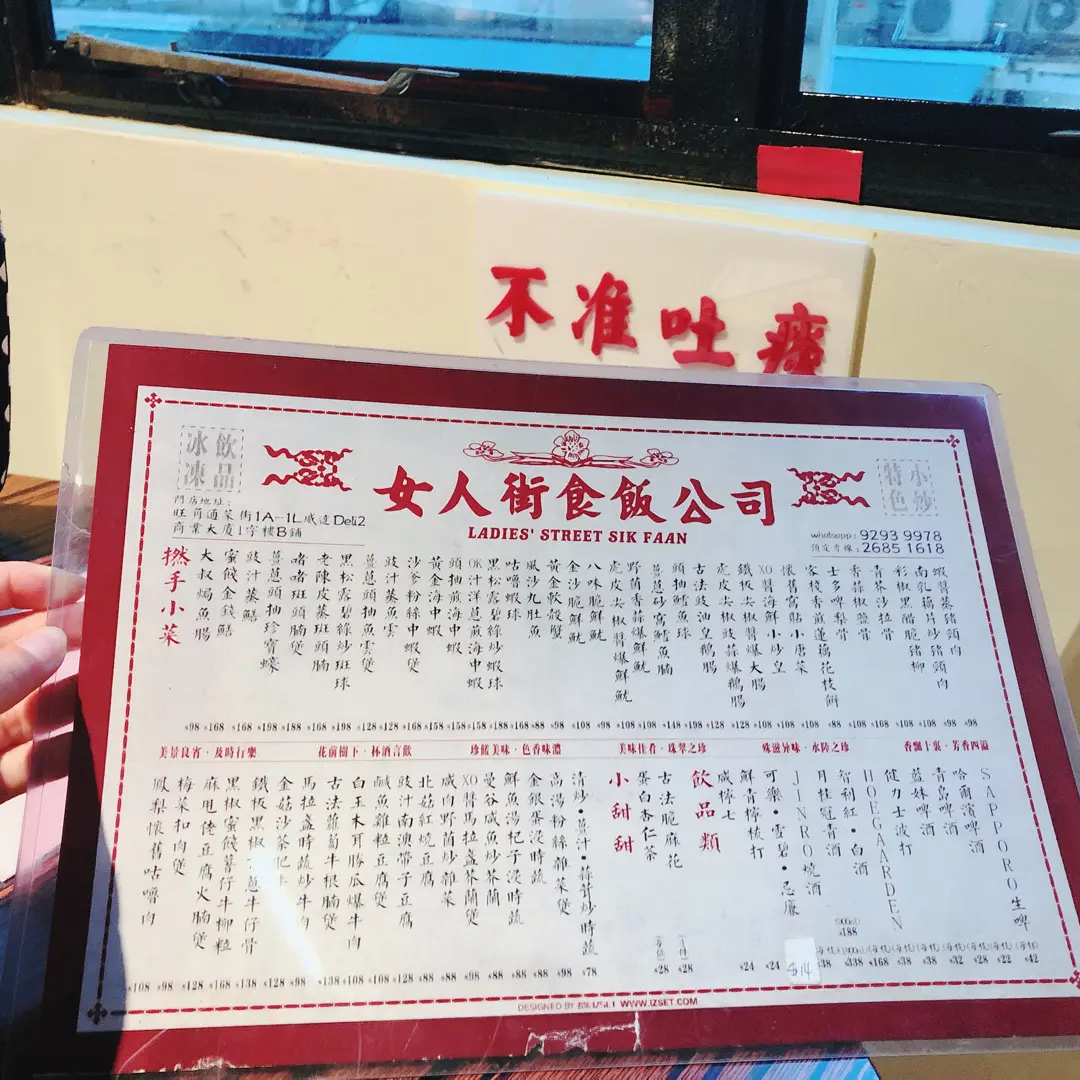 不准吐痰
飲品
冰凍
門店地址:
旺角通菜街1A-1L威達Deli2
商業大廈1字樓B鋪
女人街食飯公司
LADIES' STREET SIK FAAN
小炒
特色
whatsapp: 9293 9978
預定專線: 2685 1618
撚手小菜
大叔焗魚腸
蜜餞金錢鱔
豉汁蒸鱔
薑蔥頭抽珍寶蠔
啫啫斑頭腩煲
老陳皮蒸斑頭腩
黑松露碧絲炒斑球
薑蔥頭抽魚雲煲
豉汁蒸魚雲
沙爹粉絲中蝦煲
黃金海中蝦
頭抽煎海中蝦
OK汁洋蔥煎海中蝦
黑松露碧綠炒蝦球
咕嚕蝦球
風沙九肚魚
黃金軟殼蟹
金沙脆鮮魷
八味脆鮮魷
虎皮尖椒醬爆鮮魷
野菌香蒜爆鮮魷
薑蔥砂窩鱔魚腩
頭抽鱈魚球
古法豉油皇鵝腸
虎皮尖椒豉蒜爆鵝腸
鐵板青椒爆大腸
XO醬海鮮小炒皇
懷舊窩貼小唐菜
客棧香煎蓮藕花枝餅
士多啤梨骨
香蒜椒鹽骨
青芥沙拉骨
彩椒黑醋脆豬柳
南乳藕片炒豬頸肉
蝦醬蒸豬頸肉
$98 $168 $168 $198 $188 $168 $198 $128 $128 $168 $158 $158 $188 $168 $88 $98 $108 $98 $108 $108 $148 $198 $128 $128 $108 $108 $108 $88 $108 $108 $108 $108 $98 $98
美景良宵·及時行樂 花前樹下·杯酒言歡 珍饈美味·色香味濃 美味佳肴·珠翠之珍 殊滋异味·水陸之珍 香飄十裏·芳香四溢
鳳梨懷舊咕嚕肉
梅菜扣肉煲
麻甩佬豆腐火腩煲
黑椒蜜餞薯仔牛柳粒
鐵板黑椒蔥牛仔骨
金菇沙茶肥牛
馬拉盞時蔬炒牛肉
古法蘿蔔牛根腩煲
白玉木耳勝瓜爆牛肉
鹹魚雞粒豆腐煲
豉汁南澳帶子豆腐
北菇紅燒豆腐
咸肉野菌炒雜菜
XO醬馬拉盞芥蘭煲
曼谷咸魚炒芥蘭
鮮魚湯杞子浸時蔬
金銀蛋浸時蔬
高湯粉絲雜菜煲
清炒·薑汁·蒜茸炒時蔬
小甜甜
蛋白杏仁茶
古法脆麻花
飲品類
咸檸七
鮮青檸梳打
可樂·雪碧·忌廉
JINRO燒酒
月桂冠清酒
智利紅·白酒
HOEGAARDEN
健力士波打
藍妹啤酒
青島啤酒
哈爾濱啤酒
SAPPORO生啤
$108 $98 $128 $168 $138 $128 $98 $138 $108 $108 $128 $88 $88 $98 $88 $88 $88 $98 $78 $28 $28 $24 $24 $14 $38 $338 $168 $38 $38 $32 $28 $22 $42
$188
WWW.IZSET.COM